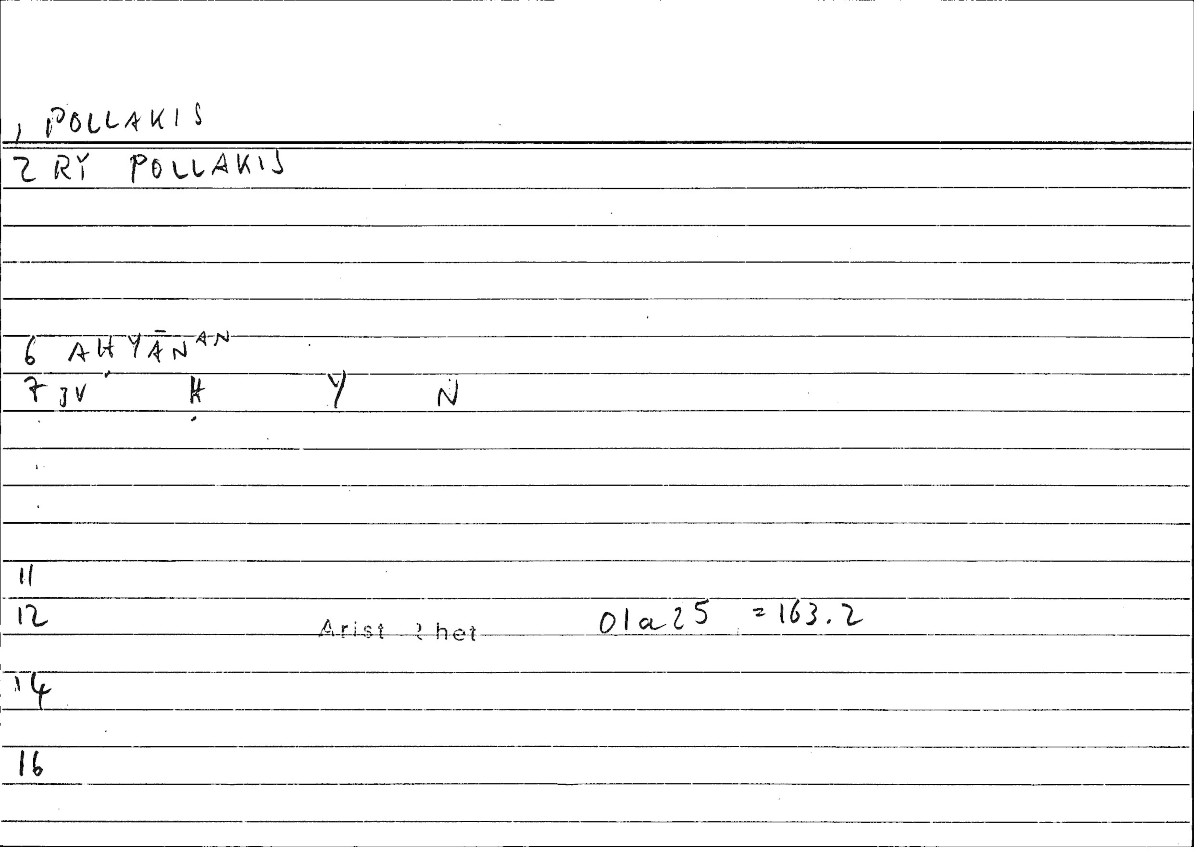 1 POLLAKIS
2 RY POLLAKIS
6 AḤYĀNAN
7 3V Ḥ Y N
11
12 Arist Rhet 01a25 =163.2
14
16